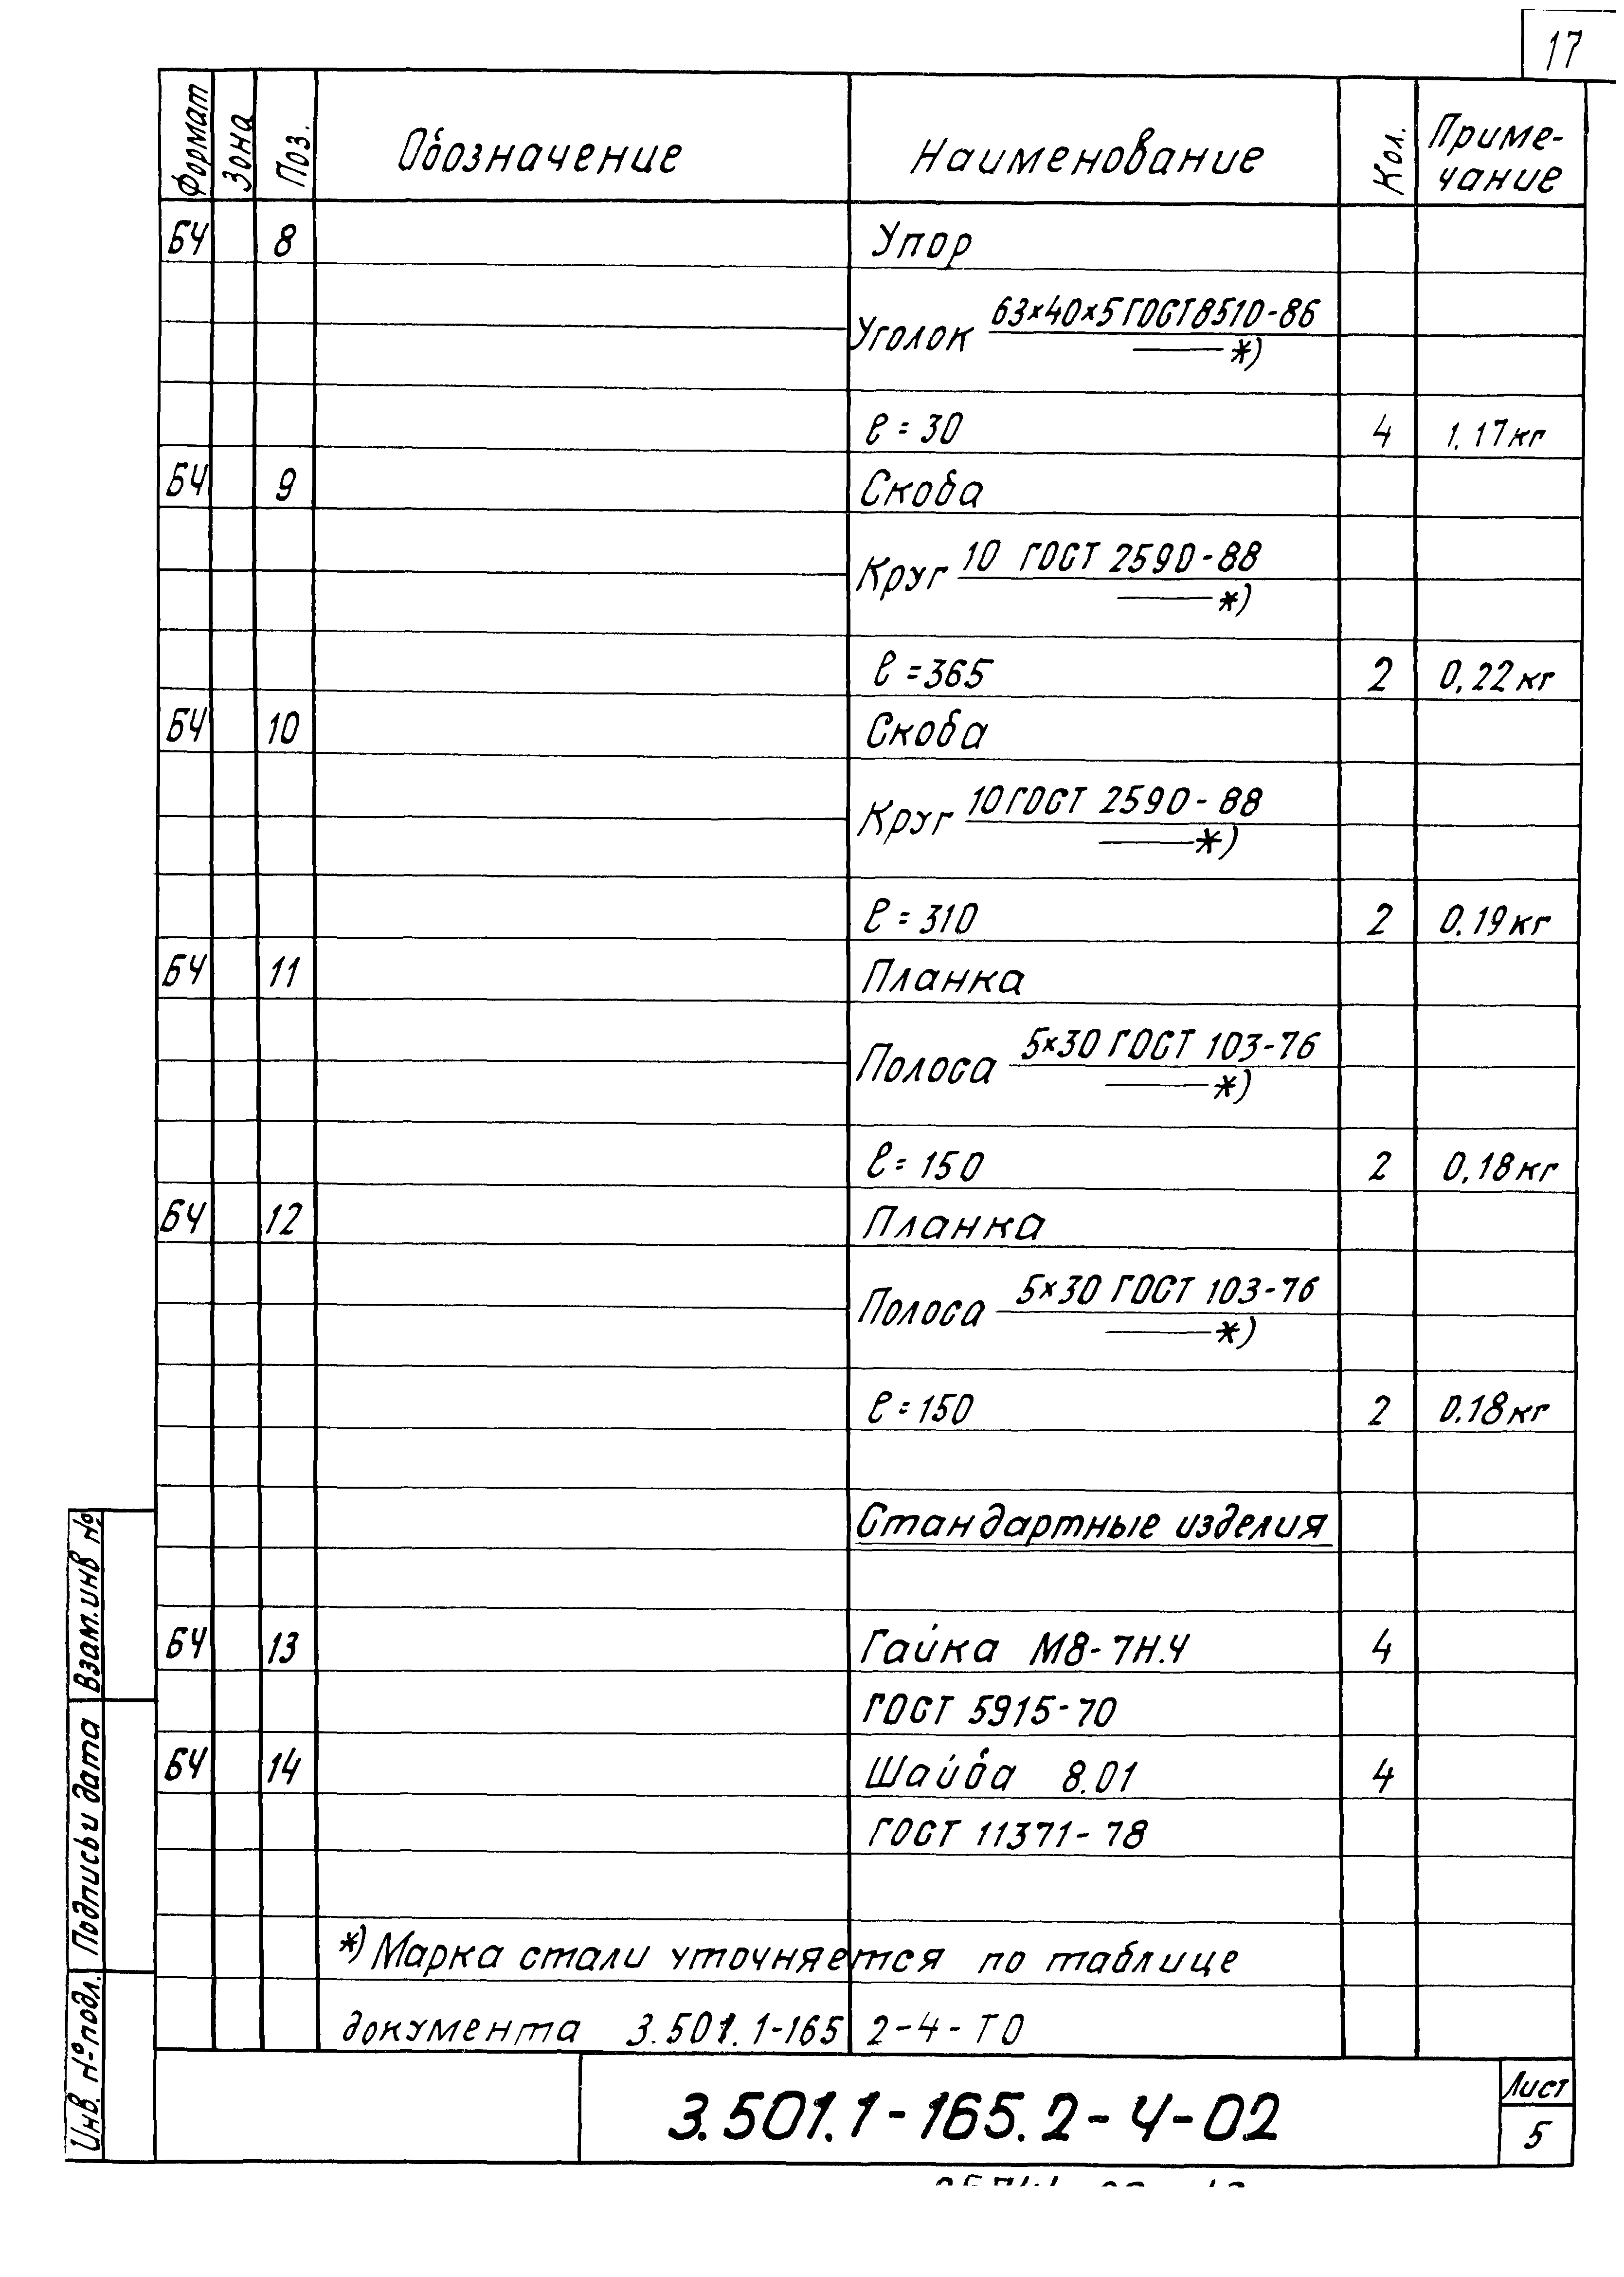 17
Формат Зона Поз. Обозначение Наименование Кол. Приме-
чание
БЧ 8 Упор
63×40×5 ГОСТ 8510-86
Уголок
*)
ℓ = 30 4 1,17 кг
БЧ 9 Скоба
10 ГОСТ 2590-88
Круг
*)
ℓ = 365 2 0,22 кг
БЧ 10 Скоба
10 ГОСТ 2590-88
Круг
*)
ℓ = 310 2 0,19 кг
БЧ 11 Планка
5×30 ГОСТ 103-76
Полоса
*)
ℓ = 150 2 0,18 кг
БЧ 12 Планка
5×30 ГОСТ 103-76
Полоса
*)
ℓ = 150 2 0,18 кг
Стандартные изделия
БЧ 13 Гайка М8-7Н.4 4
ГОСТ 5915-70
БЧ 14 Шайба 8.01 4
ГОСТ 11371-78
*) Марка стали уточняется по таблице
документа 3.501.1-165 2-4-ТО
3.501.1-165.2-4-02
Лист
5
Взам.инв №
Подпись и дата
Инв. № подл.